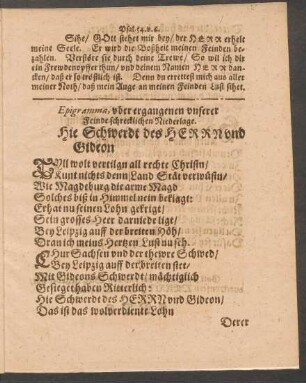 Psal. 54. v. 6.
Sihe/ GOtt stehet mir bey/ der HERR erhelt
meine Seele. Er wird die Boßheit meinen Feinden be-
zahlen. Verstöre sie durch deine Trewe/ So wil ich dir
ein Frewdenopffer thun/ und deinem Namen HERR dan-
cken/ daß er so tröstlich ist. Denn du errettest mich aus aller
meiner Noth/ daß mein Auge an meinen Feinden Lust sihet.
Epigramma, vber ergangenen vnserer
Feinde schrecklichen Niederlage.
Hie Schwerdt des HERRN vnd
Gideon
TIll wolt vertilgn all rechte Christn/
Kunt nichts denn Land Stät verwüstn/
Wie Magdeburg die arme Magd
Solches biß in Himmel nein beklagt:
Er hat nu seinen Lohn gekrigt/
Sein grosses Heer darnieder ligt/
Bey Leipzig auff der breiten Höh/
Dran ich meins Hertzen Lust nu seh.
CHur Sachsen vnd der thewre Schwed/
Bey Leipzig auff der breiten stet/
Mit Gideons Schwerdt/ mächtiglich
Gesieget haben Ritterlich:
Hie Schwerdt des HERRN vnd Gideon/
Das ist das wolverdiente Lohn
Derer